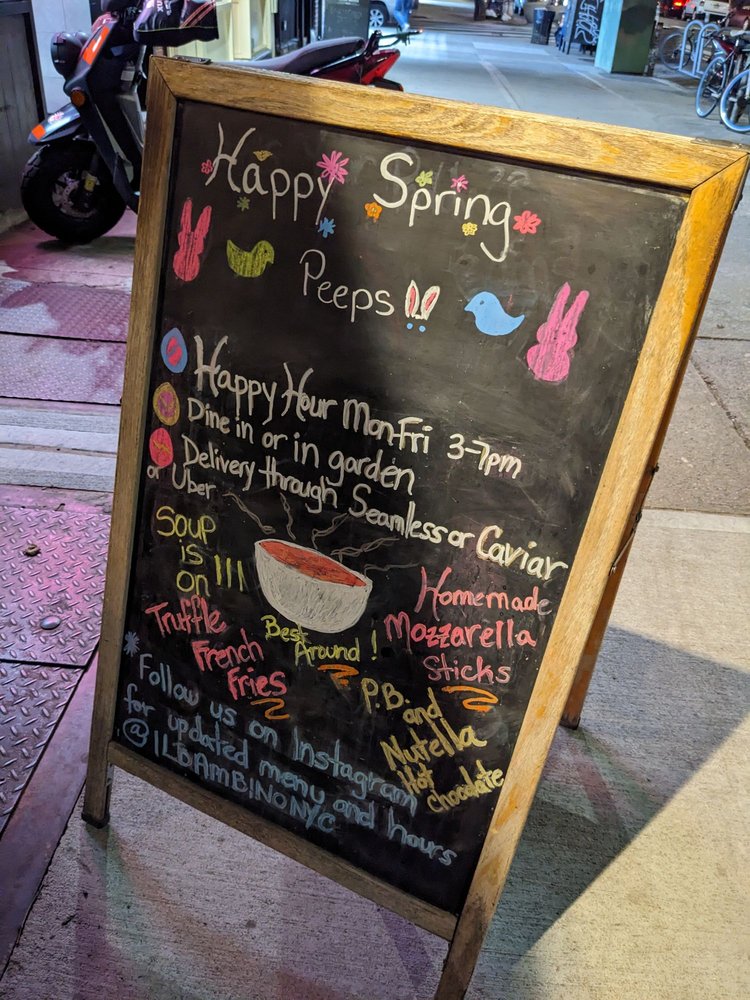 Happy Spring
Peeps
Happy Hour Mon-Fri 3-7pm
Dine in or in garden
Delivery through Seamless or Caviar
or Uber
Soup
is
on !!!
Best
Around!
Truffle
French
Fries
Homemade
Mozzarella
Sticks
P.B.
and
Nutella
Hot
chocolate
Follow us on Instagram
for updated menu and hours
@ILBAMBINONYC